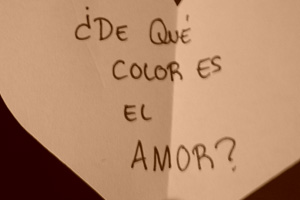 ¿DE QUÉ
COLOR ES
EL
AMOR?